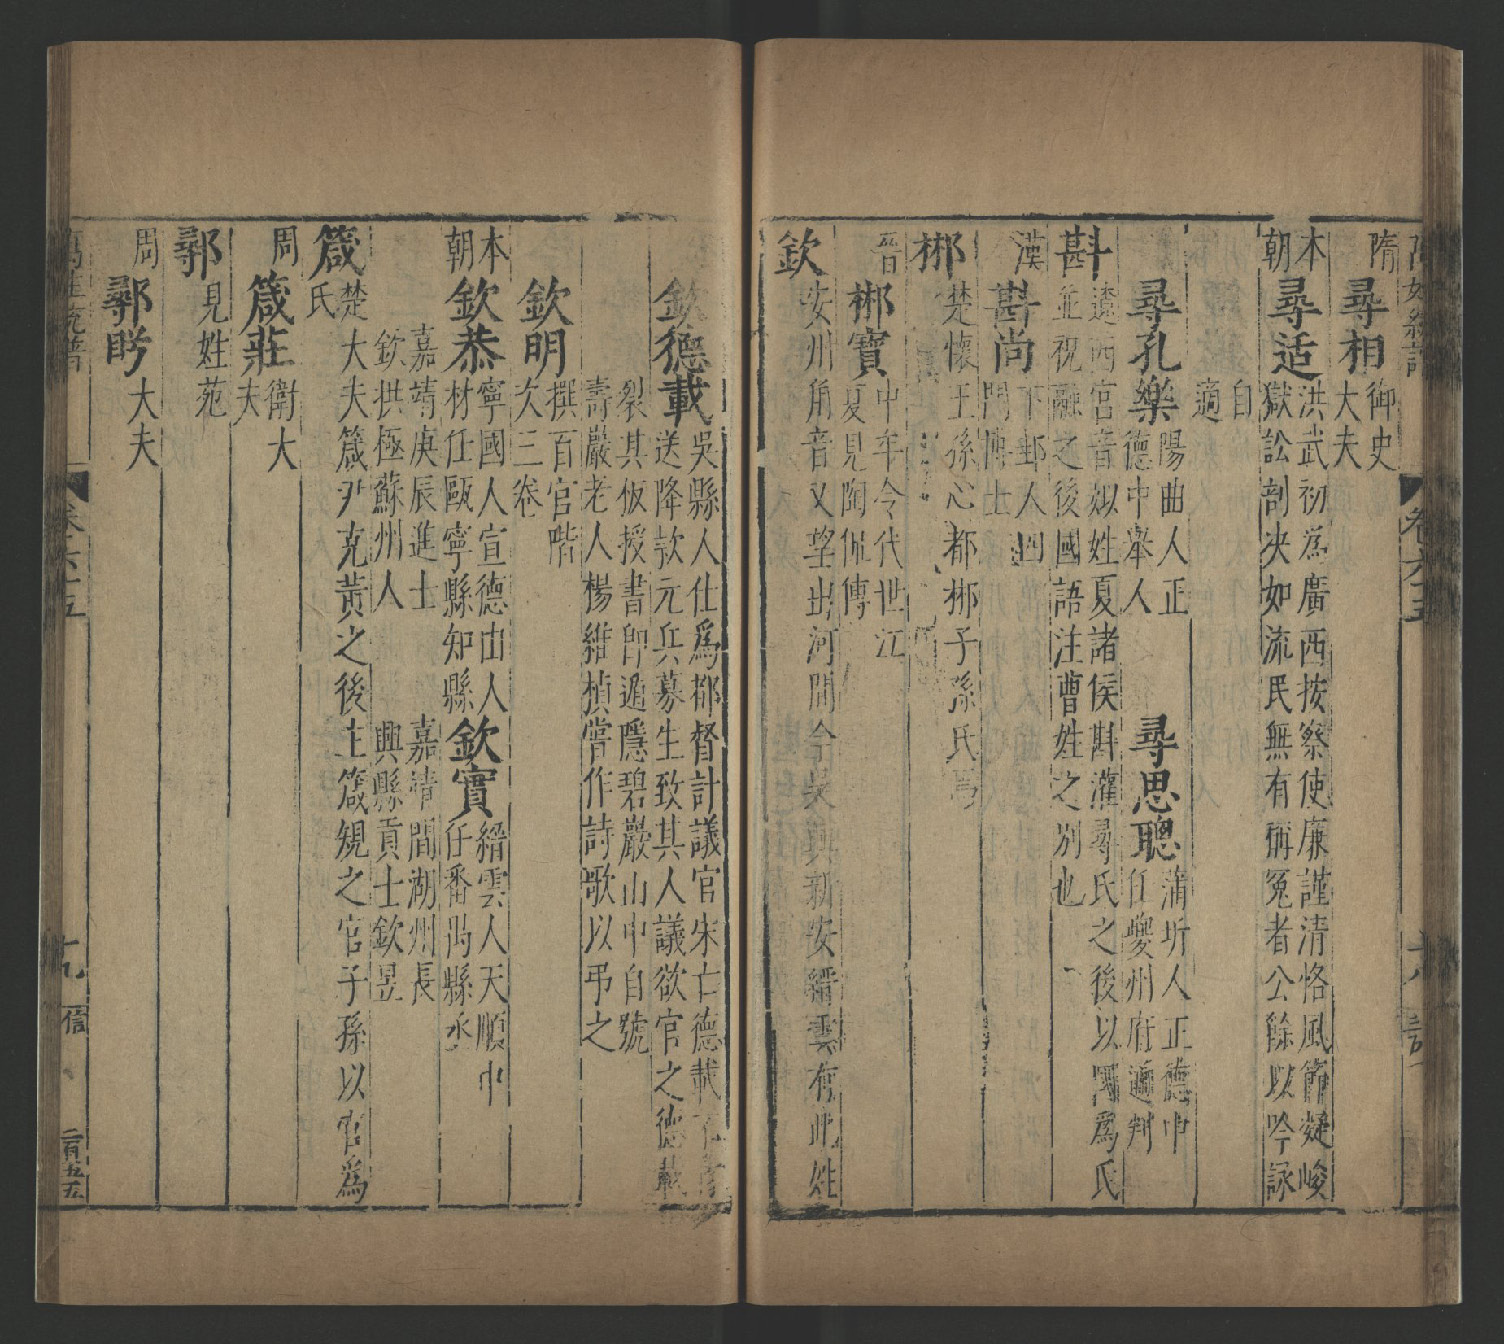 萬姓統譜
卷六十五
隋
尋相
御史
大夫
本
朝
尋适
洪武初為廣西按察使廉謹清恪風節凝峻
獄訟剖决如流民無有稱冤者公餘以吟詠
自
適
尋孔樂
陽曲人正
德中舉人
尋思聰
蒲圻人正德中
任夔州府通判
斟
遼西宫音姒姓夏諸侯斟灌尋氏之後以國爲氏
並祝融之後國語注曹姓之别也
漢
斟尚
下邳人四
門博士
郴
楚懷王孫心都郴子孫氏焉
晉
郴寶
中牟令代世江
夏見陶侃傳
欽
安州角音又望出河間今吳興新安縉雲有此姓
欽德載
吳縣人仕爲都督計議官宋亡德載
送降欵元兵募生致其人議欲官之德載
裂其仮授書印遁隱碧巖山中自號
壽嚴老人楊維楨嘗作詩歌以弔之
欽明
撰百官階
次三卷
本
朝
欽恭
寧國人宣德由人
材任甌寧縣知縣
欽實
縉雲人天順中
任番禺縣丞
嘉靖庚辰進士
欽拱極蘇州人
嘉靖間湖州長
興縣貢士欽昱
箴
楚大夫箴尹克黄之後主箴規之官子孫以官爲
氏
周
箴莊
衛大
夫
鄩
見姓苑
周
鄩肸
大夫
萬姓統譜
卷六十五
十九
信
二百五五